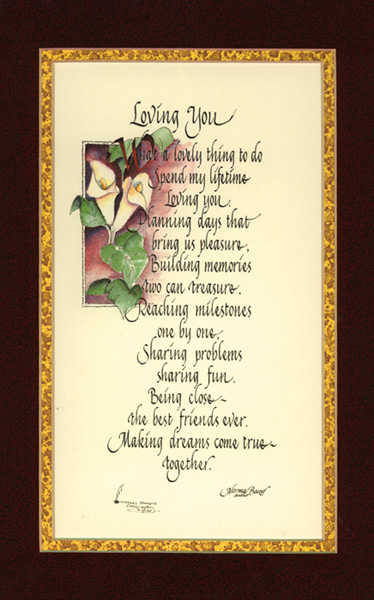 Loving You
What a lovely thing to do
Spend my lifetime
Loving you.
Planning days that
bring us pleasure,
Building memories
two can treasure.
Reaching milestones
one by one,
Sharing problems
sharing fun.
Being close~
the best friends ever.
Making dreams come true~
together.
Norma